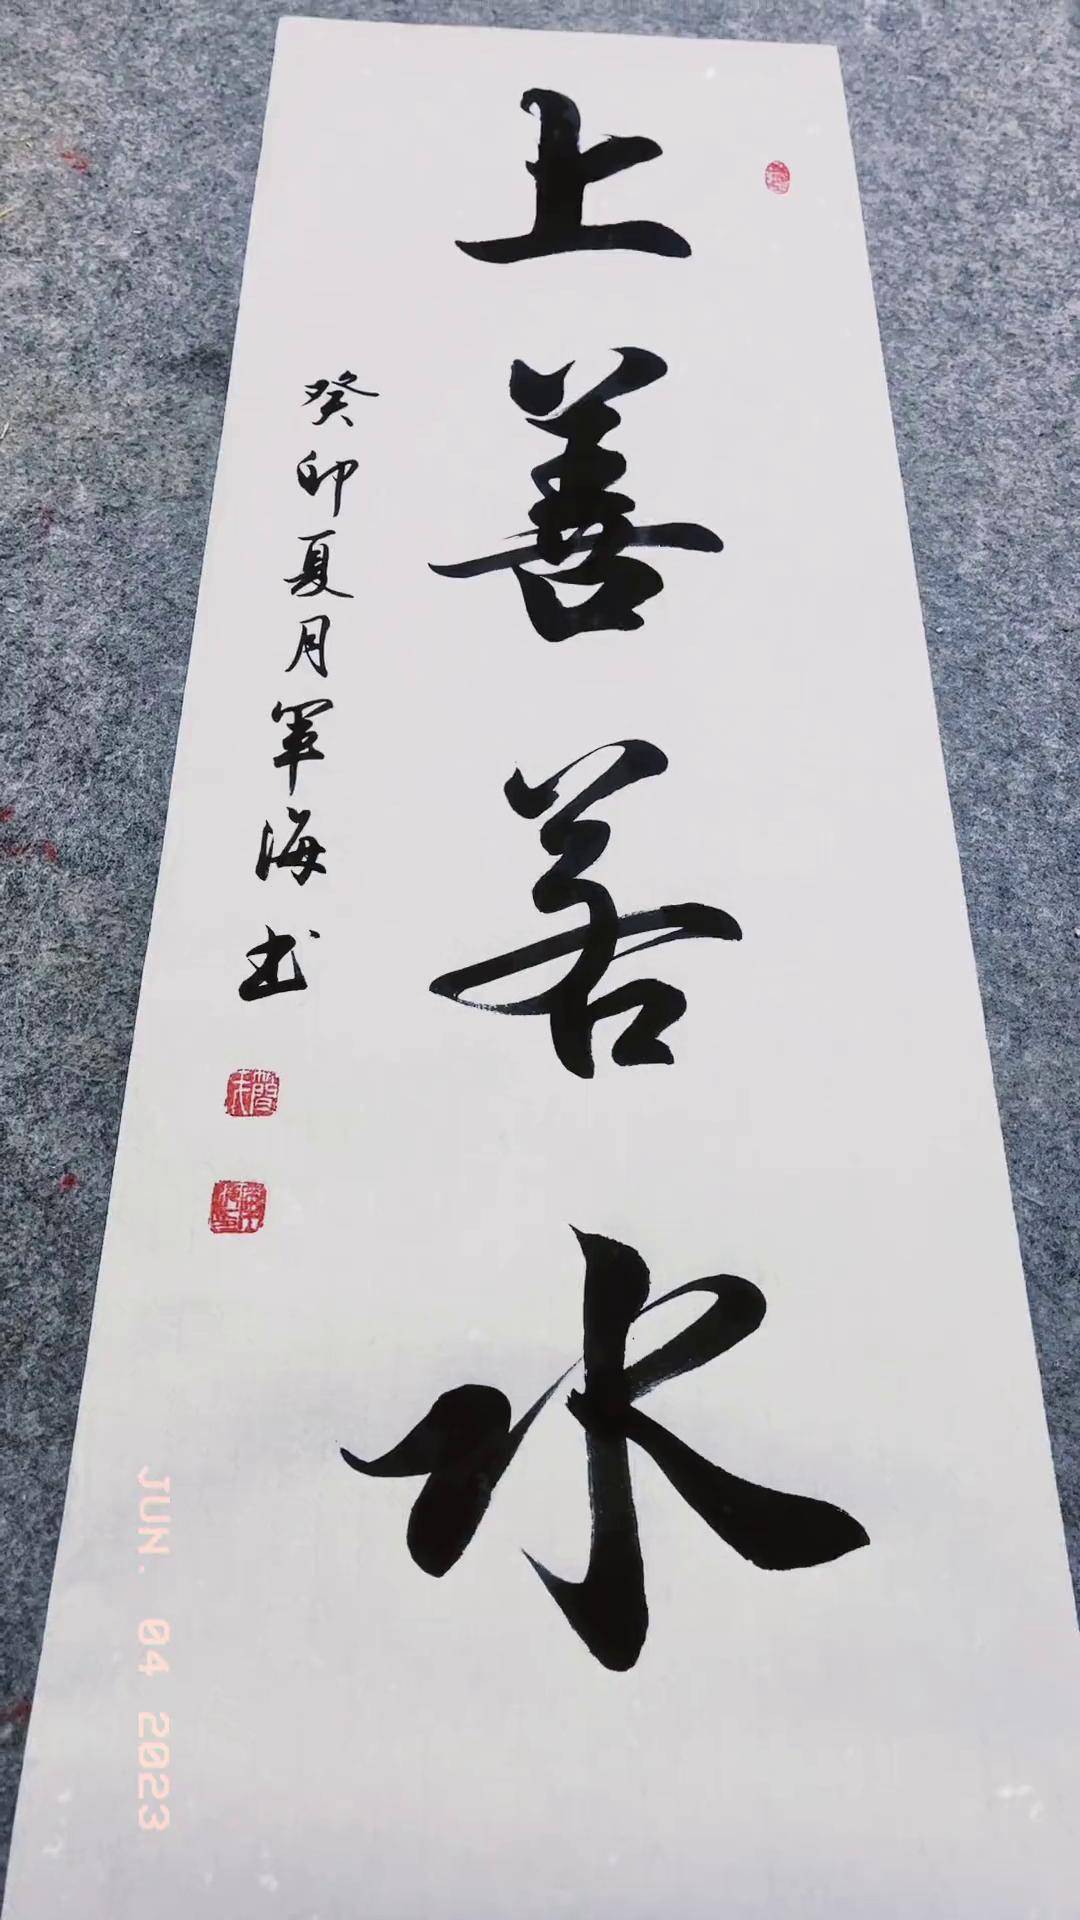 上善若水
癸卯夏月军海书
JUN. 04 2023